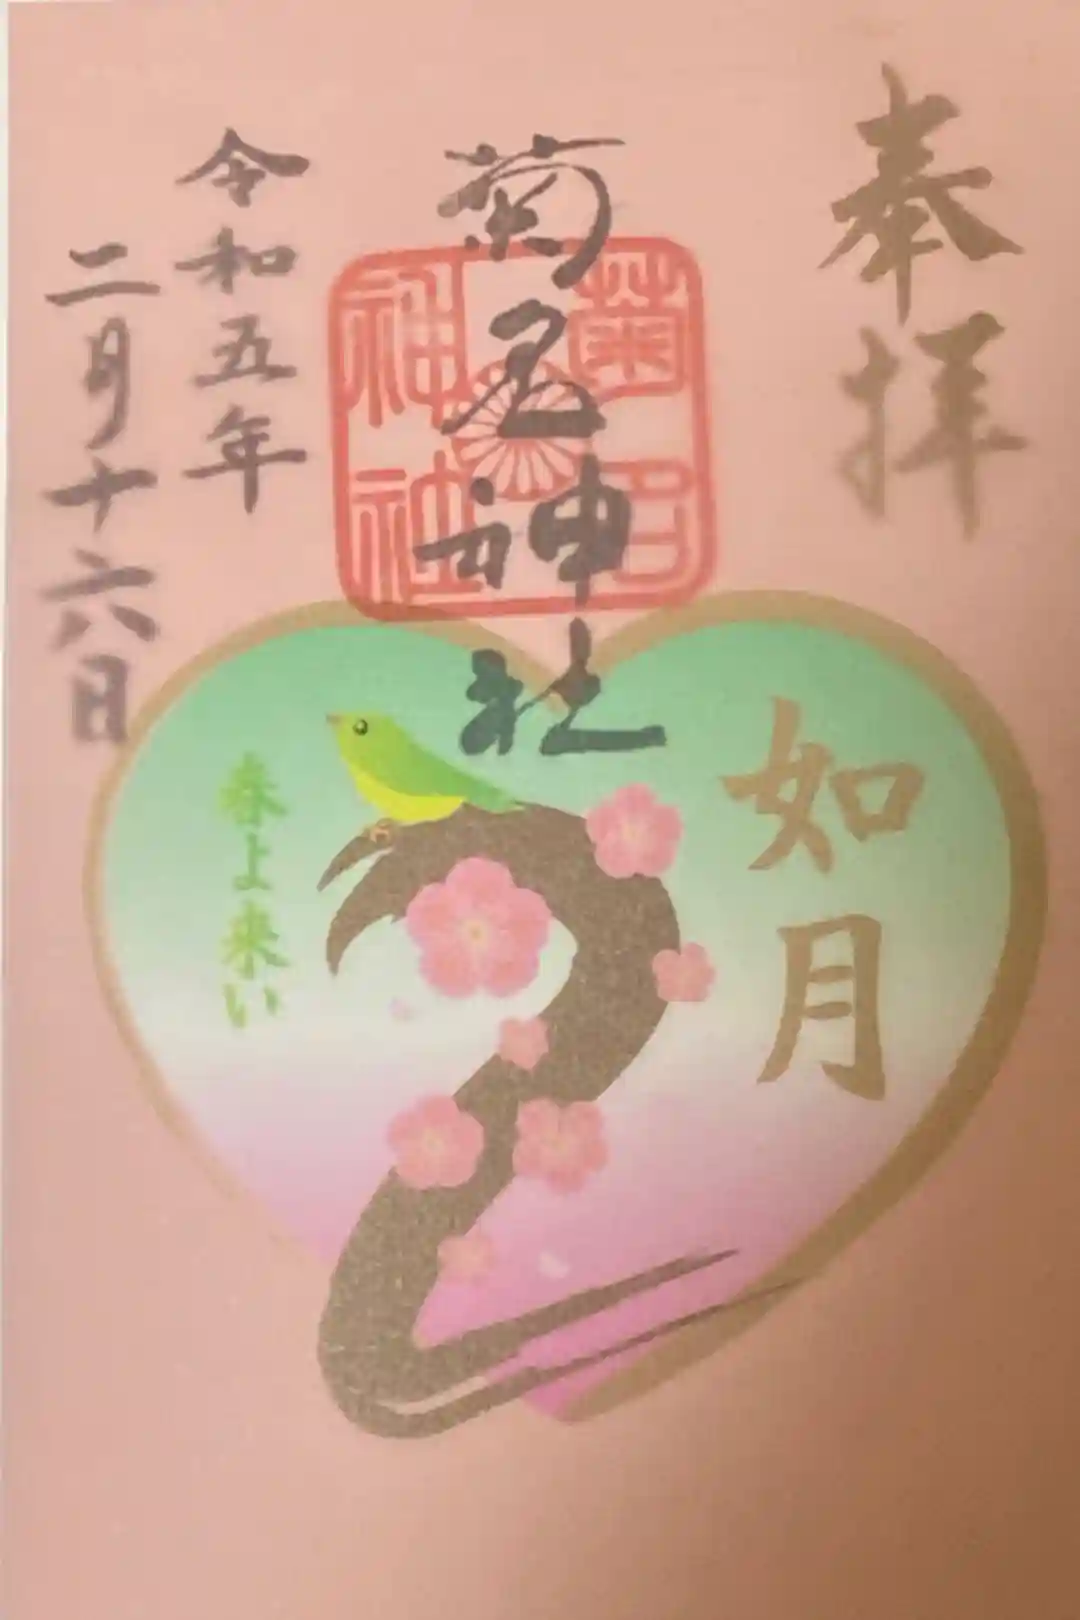 奉拝
如月
菊名神社
菊名
神社
春よ来い
令和五年
二月十六日